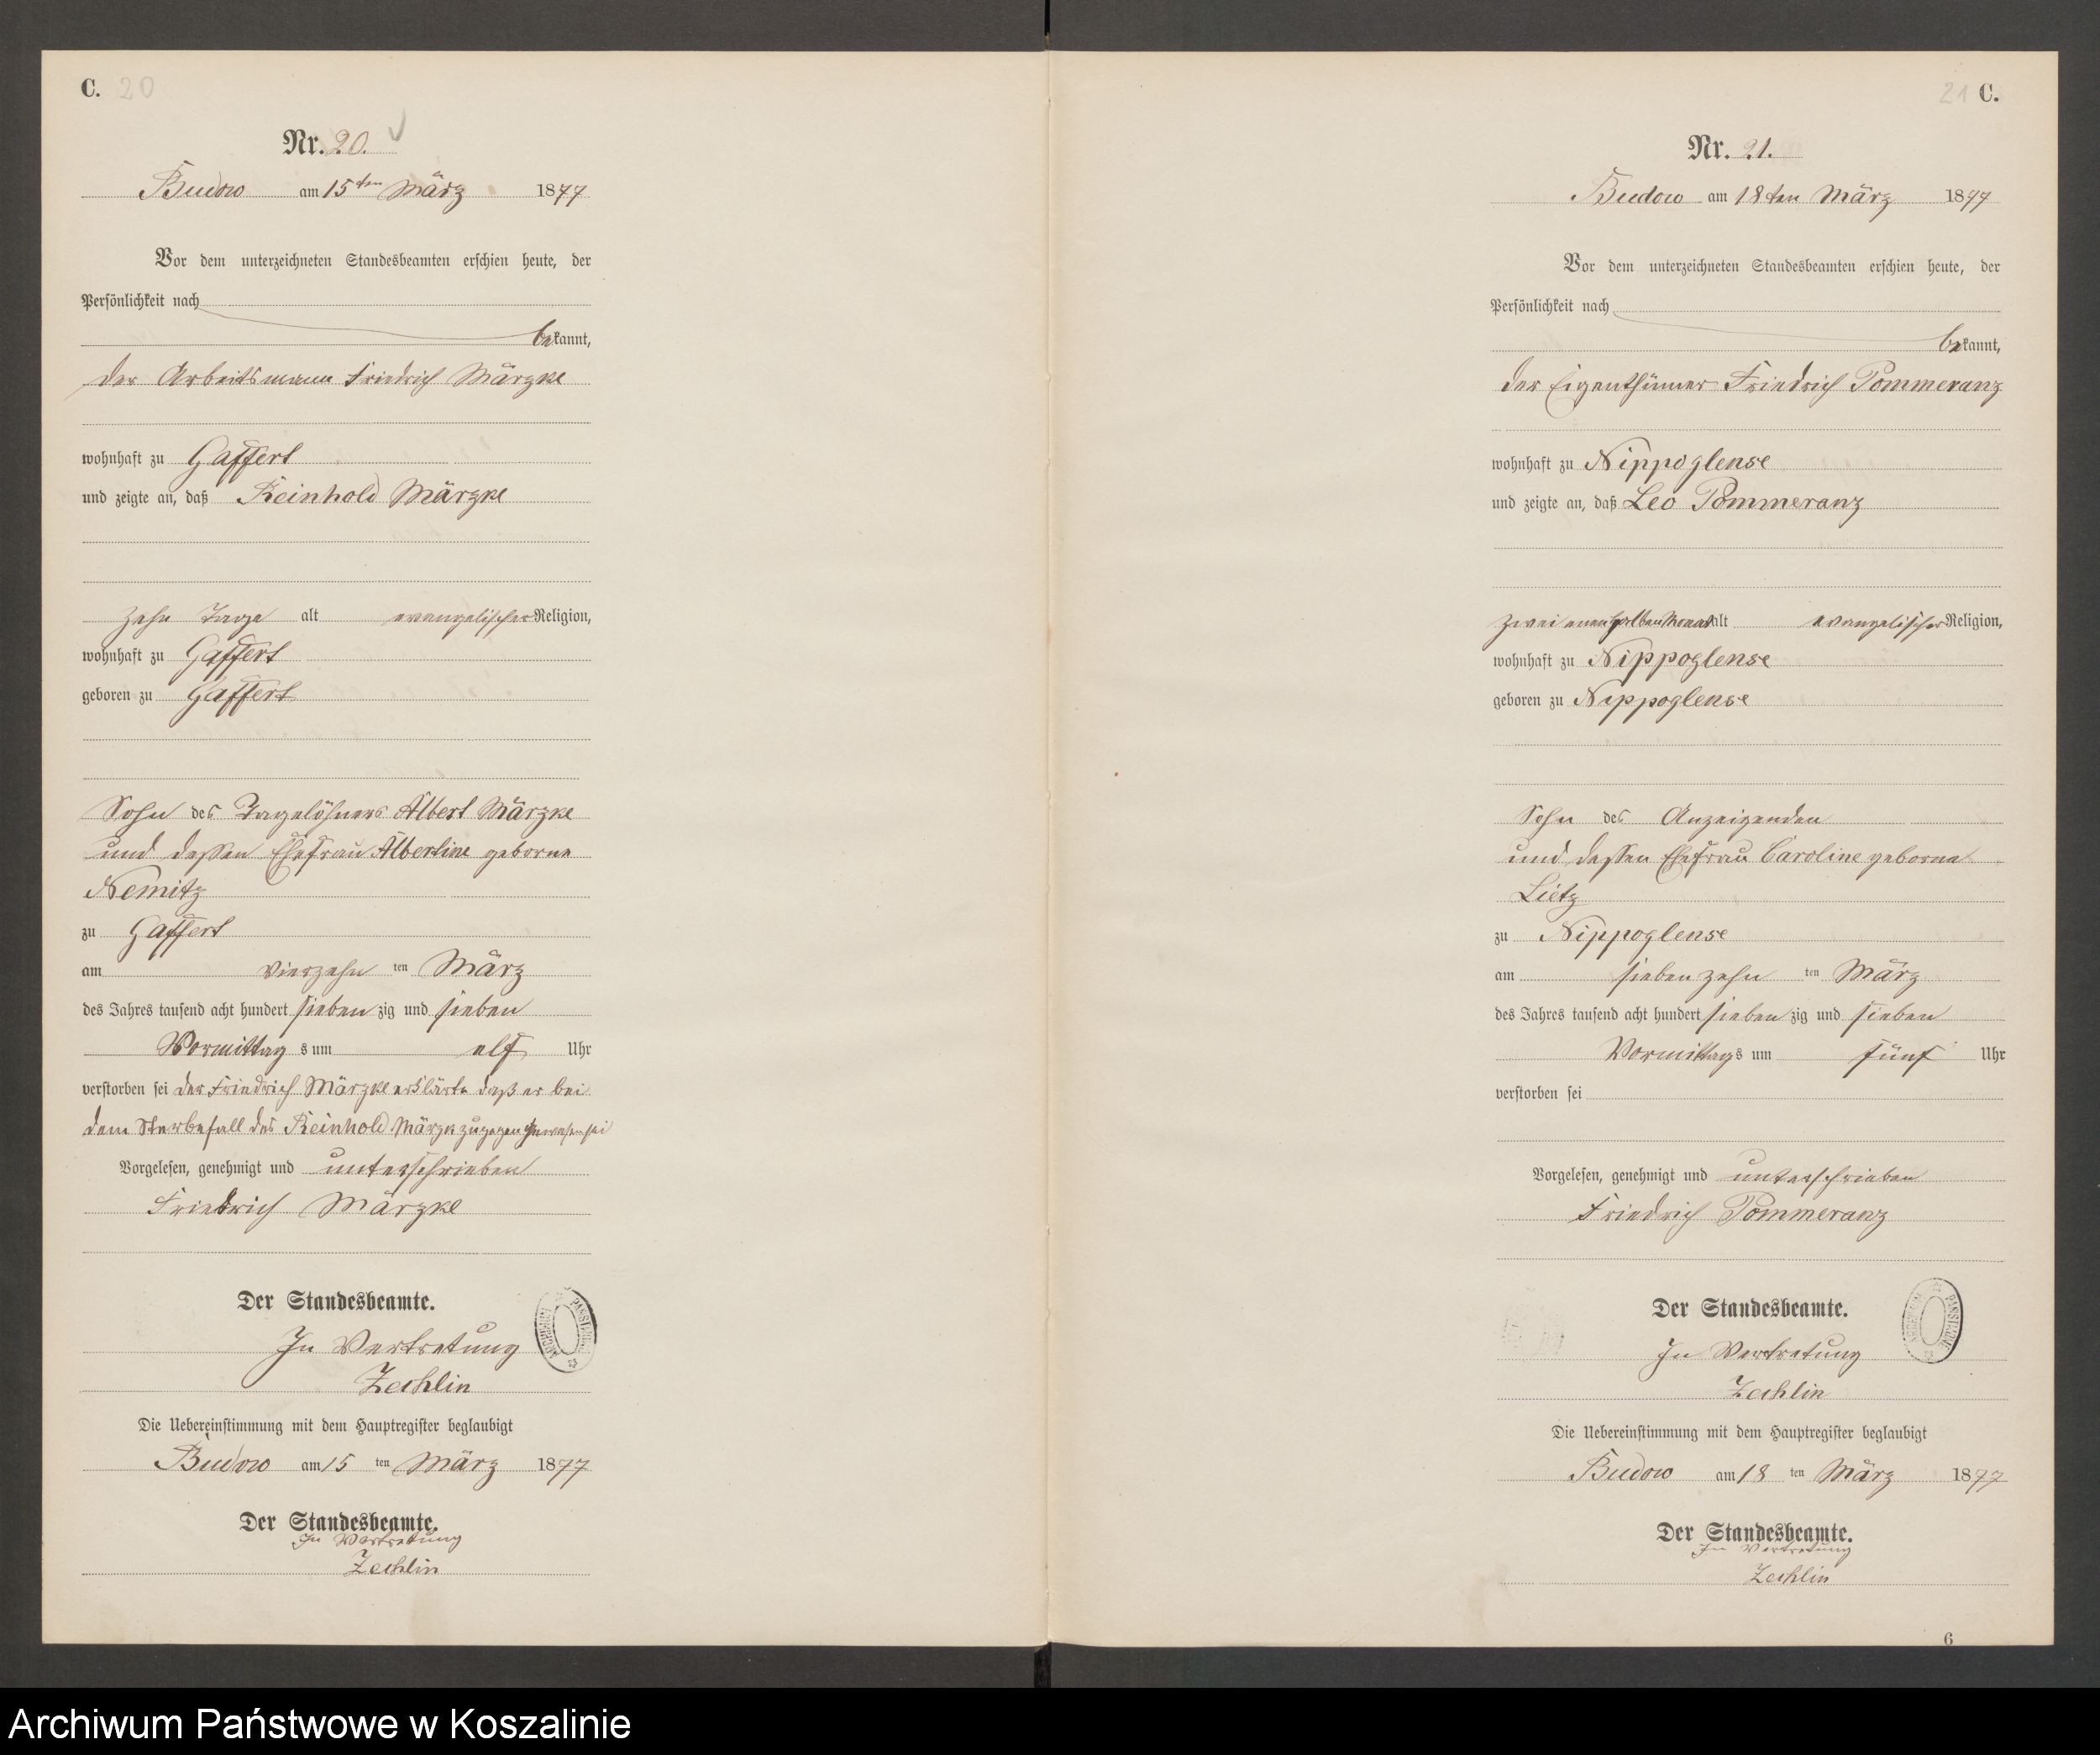 C. 20
Nr. 20.
Budow am 15ten März 1877
Vor dem unterzeichneten Standesbeamten erschien heute, der
Persönlichkeit nach
bekannt,
der Arbeitsmann Friedrich Märzke
wohnhaft zu Gaffert
und zeigte an, daß Reinhold Märzke
zehn Tage alt evangelischer Religion,
wohnhaft zu Gaffert
geboren zu Gaffert
Sohn des Tagelöhners Albert Märzke
und dessen Ehefrau Albertine geborne
Nemitz
zu Gaffert
am vierzehn ten März
des Jahres tausend acht hundert sieben zig und sieben
Vormittag s um elf Uhr
verstorben sei der Friedrich Märzke erklärte daß er bei
dem Sterbefall des Reinhold Märzke zugegen gewesen sei
Vorgelesen, genehmigt und unterschrieben
Friedrich Märzke
Der Standesbeamte.
In Vertretung
Zechlin
Die Uebereinstimmung mit dem Hauptregister beglaubigt
Budow am 15 ten März 1877
Der Standesbeamte.
In Vertretung
Zechlin
21 C.
Nr. 21.
Budow am 18ten März 1877
Vor dem unterzeichneten Standesbeamten erschien heute, der
Persönlichkeit nach
bekannt,
der Eigenthümer Friedrich Pommeranz
wohnhaft zu Nippoglense
und zeigte an, daß Leo Pommeranz
zwei einen halben Monat alt evangelischer Religion,
wohnhaft zu Nippoglense
geboren zu Nippoglense
Sohn des Anzeigenden
und dessen Ehefrau Caroline geborne
Lietz
zu Nippoglense
am siebenzehn ten März
des Jahres tausend acht hundert sieben zig und sieben
Vormittag s um fünf Uhr
verstorben sei
Vorgelesen, genehmigt und unterschrieben
Friedrich Pommeranz
Der Standesbeamte.
In Vertretung
Zechlin
Die Uebereinstimmung mit dem Hauptregister beglaubigt
Budow am 18 ten März 1877
Der Standesbeamte.
In Vertretung
Zechlin
6
Archiwum Państwowe w Koszalinie